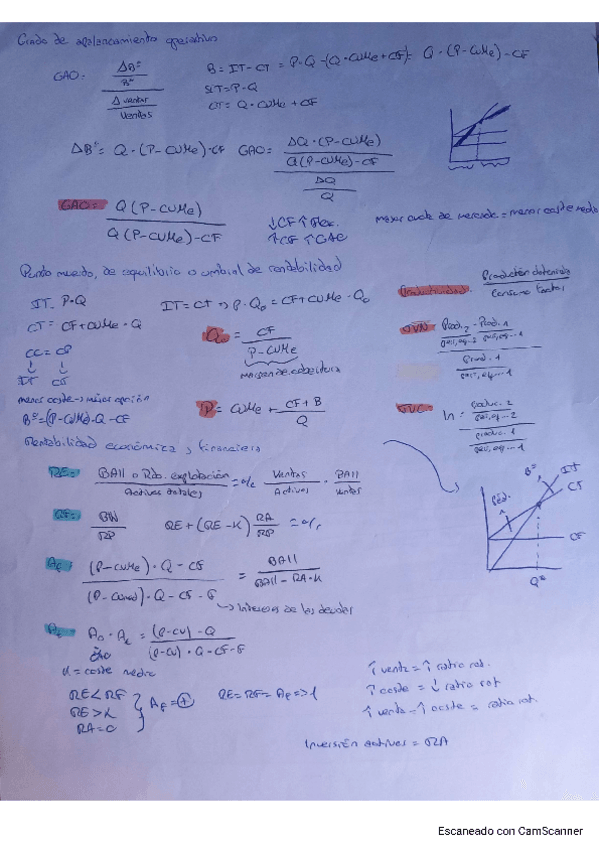 Grado de apalancamiento operativo
GAO = (ΔBº / Bº) / (Δ ventas / ventas)
B = IT - CT = P·Q - (Q·CVMe + CF) = Q·(P-CVMe) - CF
IT = P·Q
CT = Q·CVMe + CF
ΔBº = Q·(P-CVMe)-CF GAO = (ΔQ·(P-CVMe) / Q(P-CVMe)-CF) / (ΔQ / Q)
GAO = Q(P-CVMe) / Q(P-CVMe)-CF
↓CF ↑Flex.
↑CF ↑GAO
mayor cuota de mercado = menor coste medio
Punto muerto, de equilibrio o umbral de rentabilidad
IT = P·Q
CT = CF + CVMe·Q
IT = CT => P·Q₀ = CF + CVMe·Q₀
Q₀ = CF / P-CVMe
margen de cobertura
IT CT
menos coste -> mejor opción
Bº = (P-CVMe)·Q-CF
P = CVMe + CF + B / Q
Productividad: Producción obtenida / Consumo factor
Rentabilidad económica y financiera
RE = BAII o Rdo. explotación / Activos totales = % Ventas / Activos · BAII / Ventas
RF = BN / RP RE + (RE-K) RA / RP = %
Af = (P-CVMe)·Q-CF / = BAII / BAII - RA·K
Intereses de las deudas
= (P-CV)·Q / (P-CV)·Q-CF-F
K = coste medio
RE<RF
RE>K
RA=0
Af = +
RE=RF= Af=>1
↑ venta = ↑ ratio rot.
↑ coste = ↓ ratio rot
↑ venta - ↑ coste = ratio rot.
Inversión activos = RA
Bº IT
CT
CF
Escaneado con CamScanner